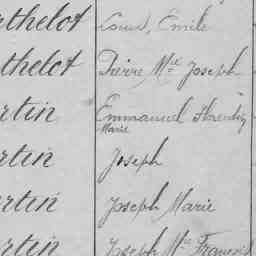 rthelot Louis, Émile
rthelot Pierre Mie Joseph
rtin Emmanuel Florentin
Marie
rtin Joseph
rtin Joseph Marie
rtin Joseph Mie François